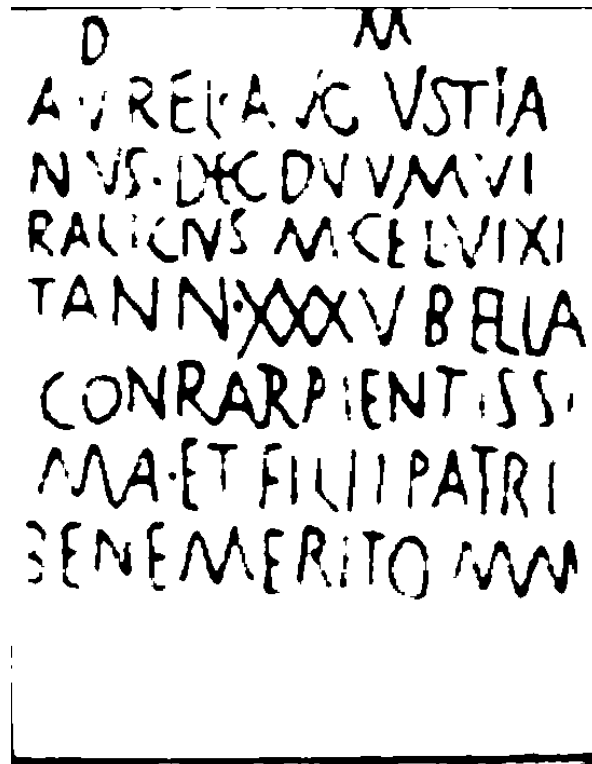 D M
AVREL·AVGVSTIA
NVS·DEC DVVMVI
RALICIVS M CEL·VIXI
TANN·XXXV BELLA
CONRARPIENTISSI
MA·ET FILII PATRI
BENEMERITO MM